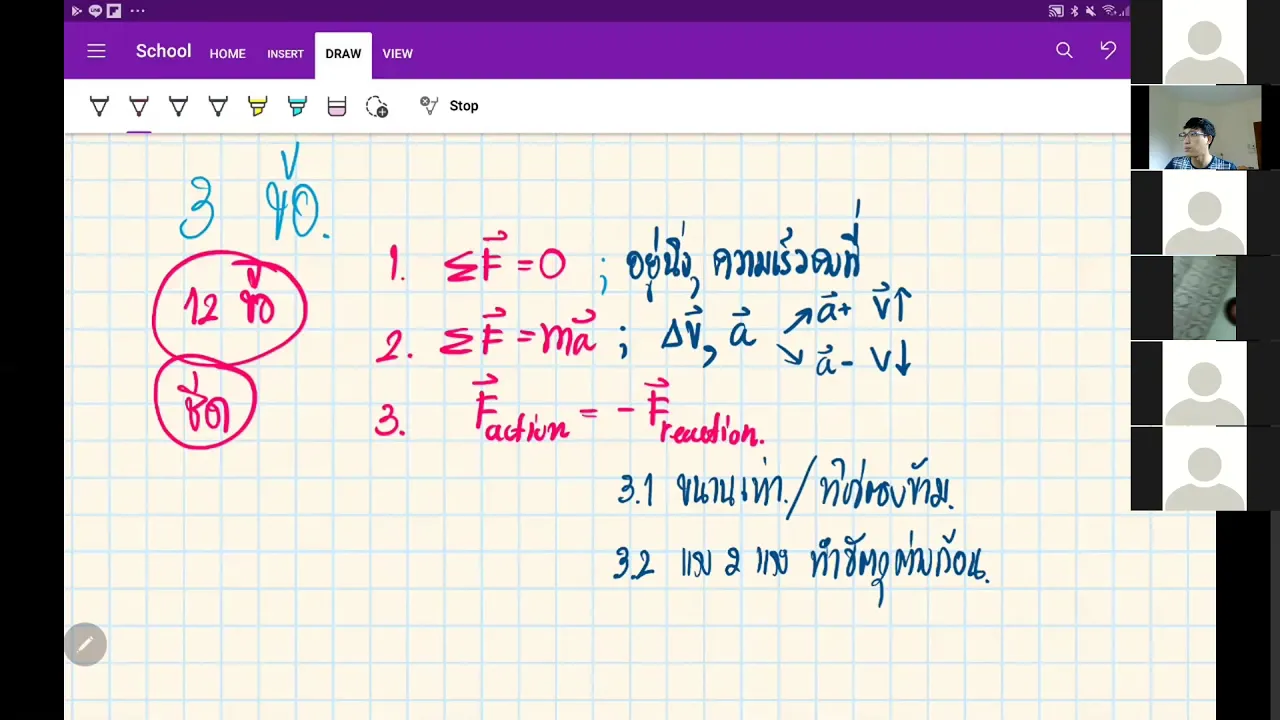 School HOME INSERT DRAW VIEW
Stop
3 ข้อ.
12 ข้อ
ชีต
1. ΣF⃗ = 0 ; อยู่นิ่ง, ความเร็วคงที่
2. ΣF⃗ = ma⃗ ; Δv⃗, a⃗ ↗ a⃗+ v⃗↑
↘ a⃗- v↓
3. F⃗action = - F⃗reaction.
3.1 ขนาดเท่า / ทิศตรงข้าม.
3.2 แรง 2 แรง ทำวัตถุต่างก้อน.